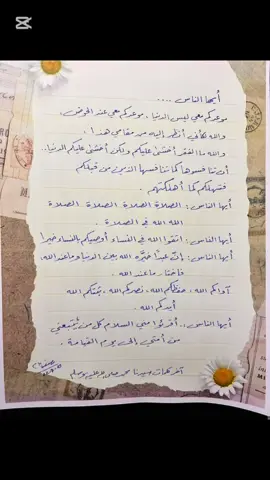 CapCut
أيها الناس ....
موعدكم معي ليس الدنيا ، موعدكم معي عند الحوض
والله لكأني أنظر إليه من مقامي هذا .
والله ما الفقر أخشى عليكم ولكن أخشى عليكم الدنيا..
أن تنافسوها كما تنافسها الذين من قبلكم
فتهلككم كما أهلكتهم .
أيها الناس : الصلاة الصلاة الصلاة . الصلاة
الله الله في الصلاة .
أيها الناس : اتقوا الله في النساء أوصيكم بالنساء خيرا
أيها الناس : إن عبدا خيّره الله بين الدنيا وما عند الله،
فاختار ما عند الله .
آواكم الله ، حفظكم الله ، نصركم الله ، ثبتكم الله
أيدكم الله .
أيها الناس .. أقرئوا مني السلام كل من يتبعني
من أمتي إلى يوم القيامة .
آخر كلمات سيدنا محمد صلى الله عليه وسلم